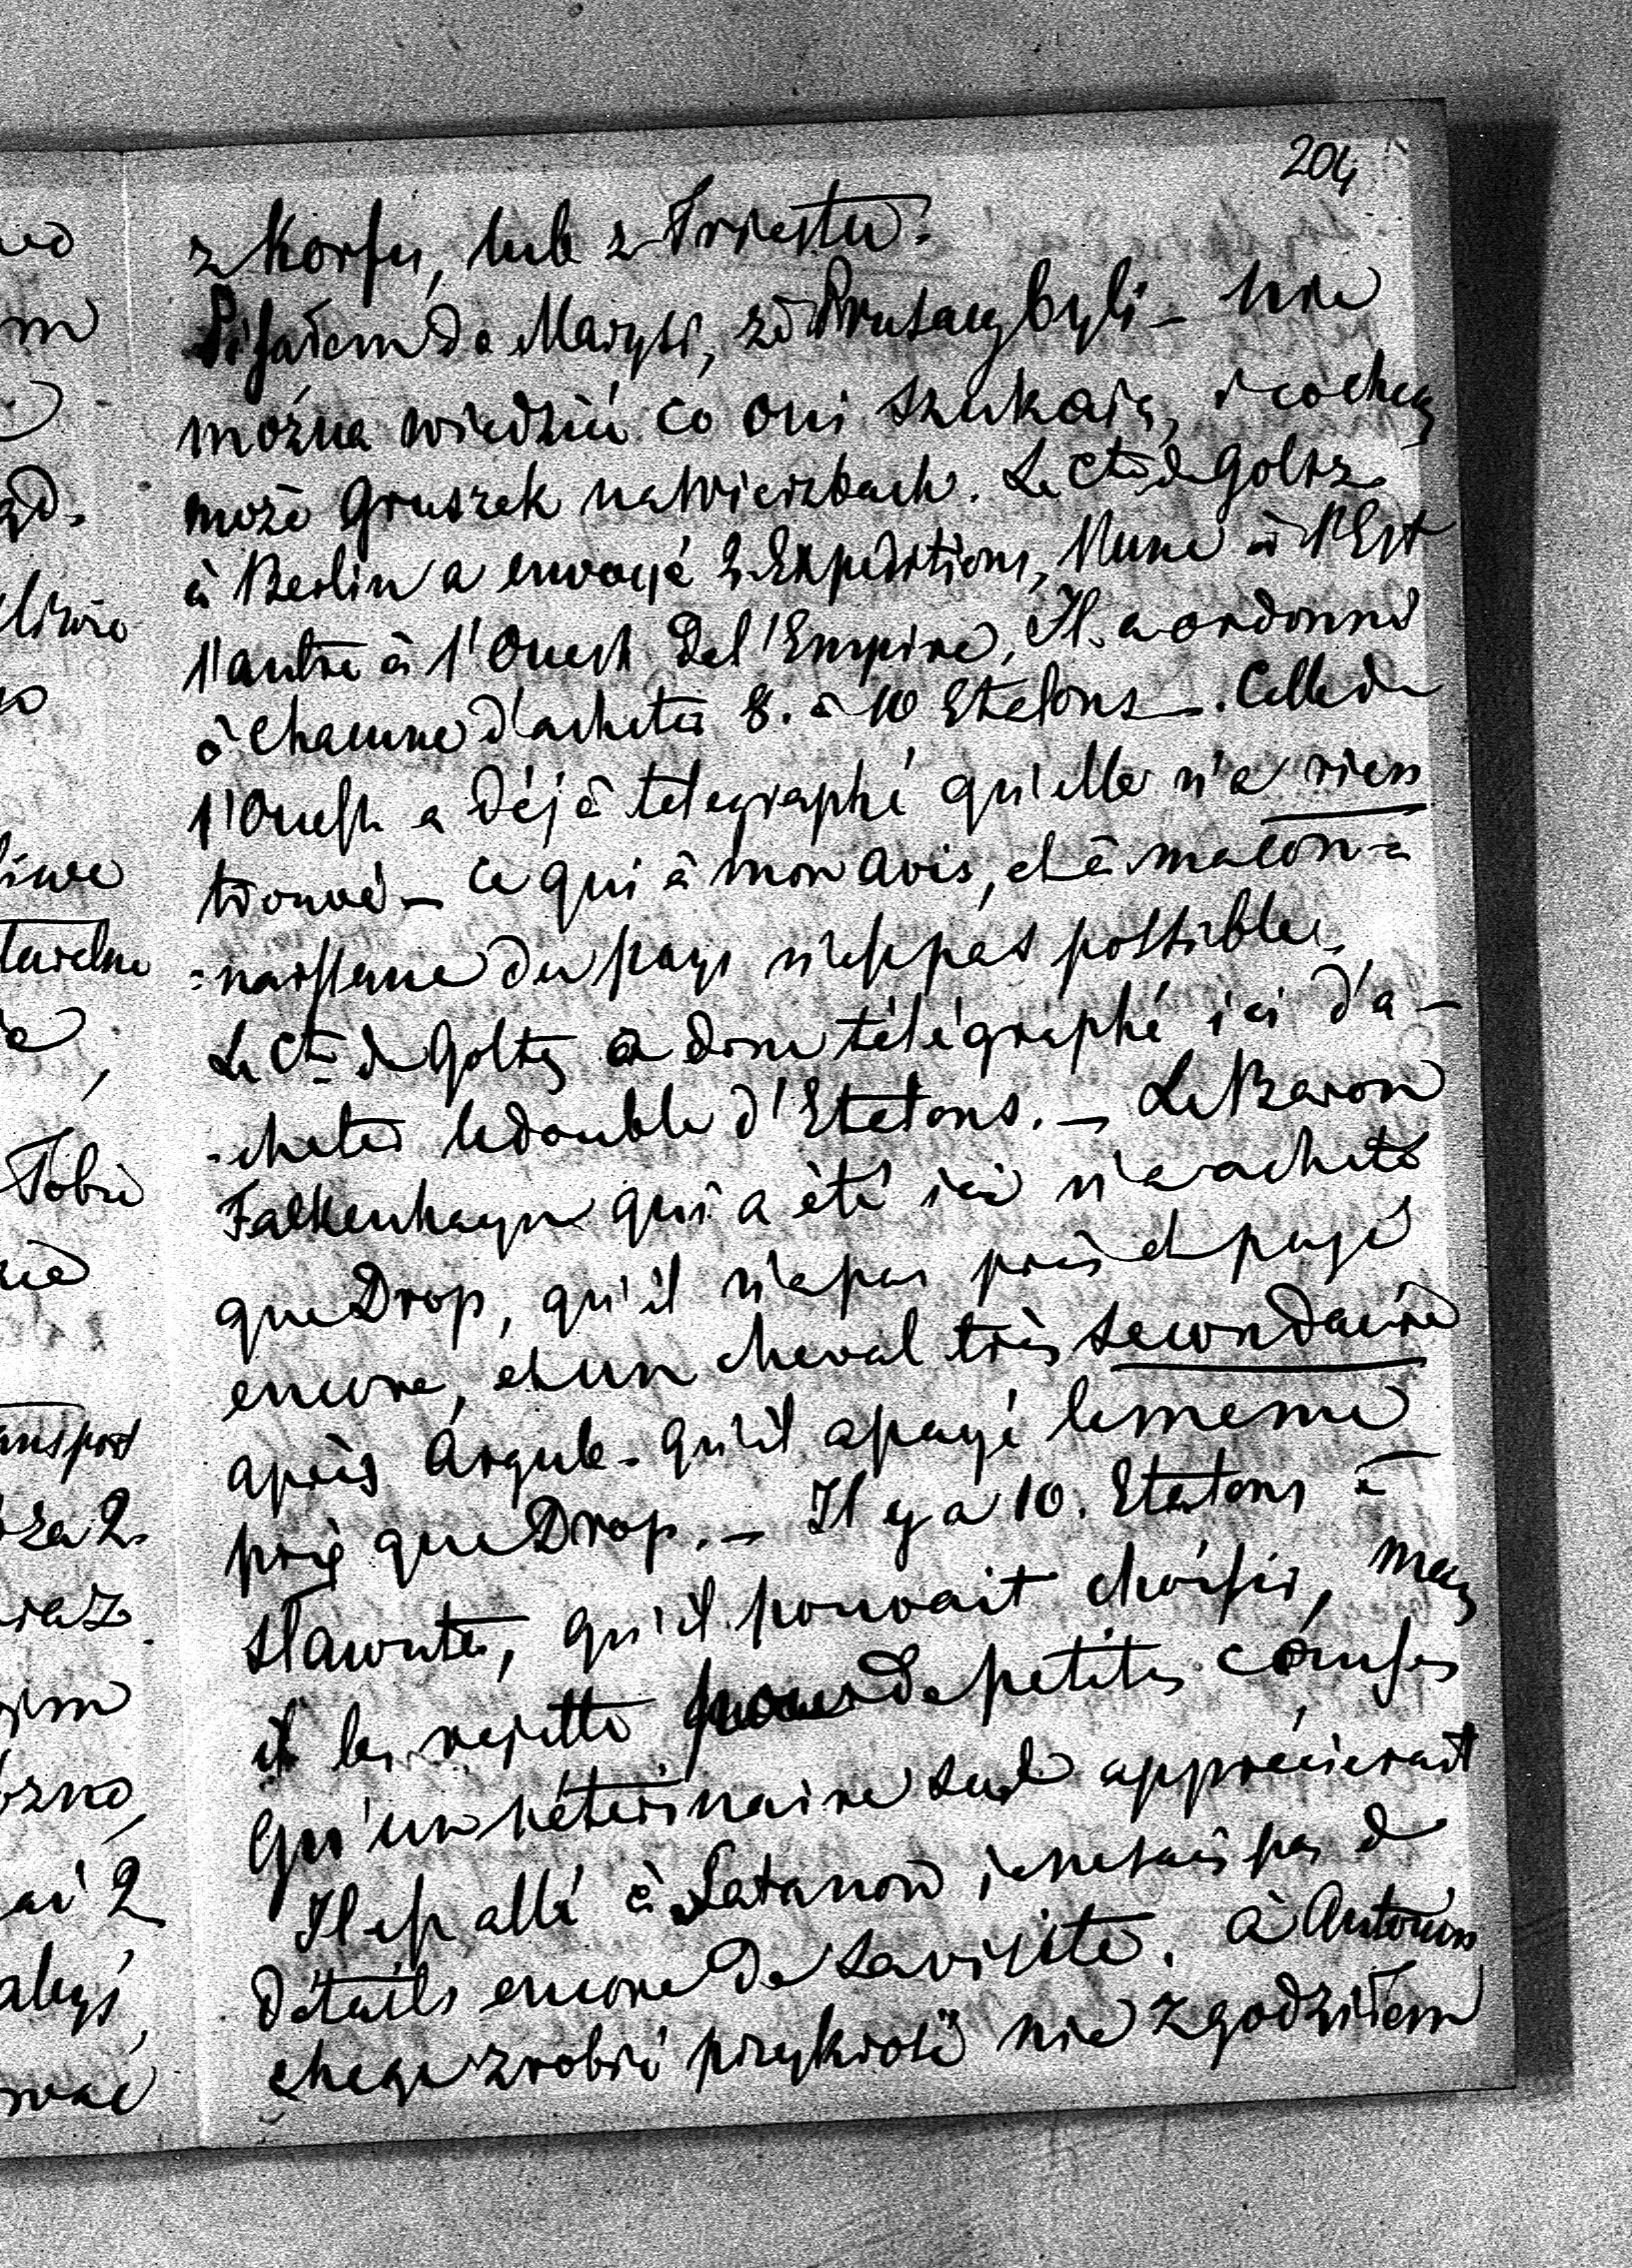 204
z Korfu, lub z Triestu.
Pisałem do Marysi, że Prusacy byli – nie
można wiedzieć co oni szukają, i co chcą
może Gruszek na Wierzbach. Le Cte de Goltz
à Berlin a envoyé 2 Expeditions, l'une à l'Est
l'autre à l'Ouest de l'Empire, Il a ordonné
à Chacune d'acheter 8. à 10 Etalons. Celle de
l'Ouest a déjà télegraphé qu'elle n'a rien
trouvé – Ce qui à mon avis, et à ma con-
-naissance du pays n'est pas possible,
Le Cte de Goltz a donc télégraphé ici d'a-
-cheter le double d'Etalons. – Le Baron
Falkenhayn qui a été ici n'a acheté
que Drop, qu'il n'a pas pris et payé
encore, et un cheval très secondaire
après Argub. qu'il a payé le meme
prix que Drop. – Il y a 10. Etalons à
Sławuta, qu'il pouvait choisir, mais
il les rejette pour de petites causes
qu'un véterinaire seul apprécierait
Il est allé à Satanow, je ne sais pas de
détails encore de sa visite. à Antonin
chcąc zrobić przykrość nie zgodziłem